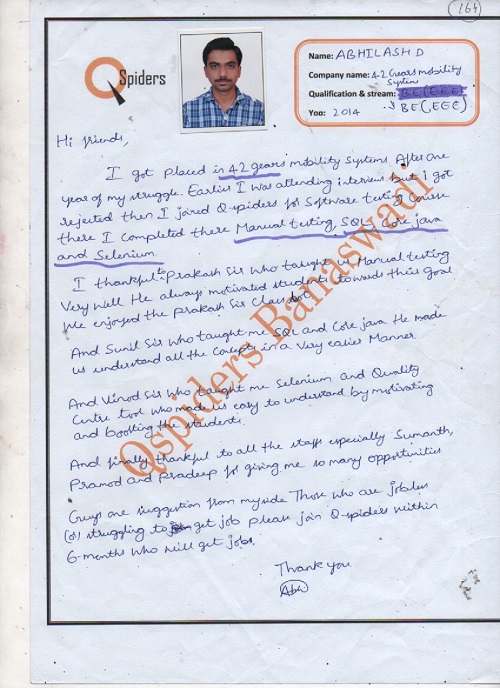 (164)
Q Spiders
Name: ABHILASH D
Company name: 4-2 Gears mobility
Systems
Qualification & stream: BE(EEE)
BE(EEE)
YOP: 2014
Hi friends,
I got placed in 42 gears mobility Systems After one
year of my struggle. Earlier I was attending interview but i got
rejected then I joined Q-spiders for Software testing Course
there I completed there Manual testing, SQL, Core java
and Selenium.
I thankful to Prakash Sir who taught us Manual testing
Very well He always motivated students towards their Goal
We enjoyed the Prakash Sir Class lot
And Sunil Sir who taught me SQL and Core java He made
us understand all the Concepts in a very easier Manner
And Vinod Sir who taught me Selenium and Quality
Centre tool who made us easy to understand by motivating
and boosting the students.
And finally thankful to all the staffs especially Sumanth,
Pramod and Pradeep for giving me so many opportunities
Guys one suggestion from myside Those who are jobless
(or) struggling to get job please join Q-spiders within
6-months who will get jobs.
Thank you
Abhi
Qspiders Banaswadi